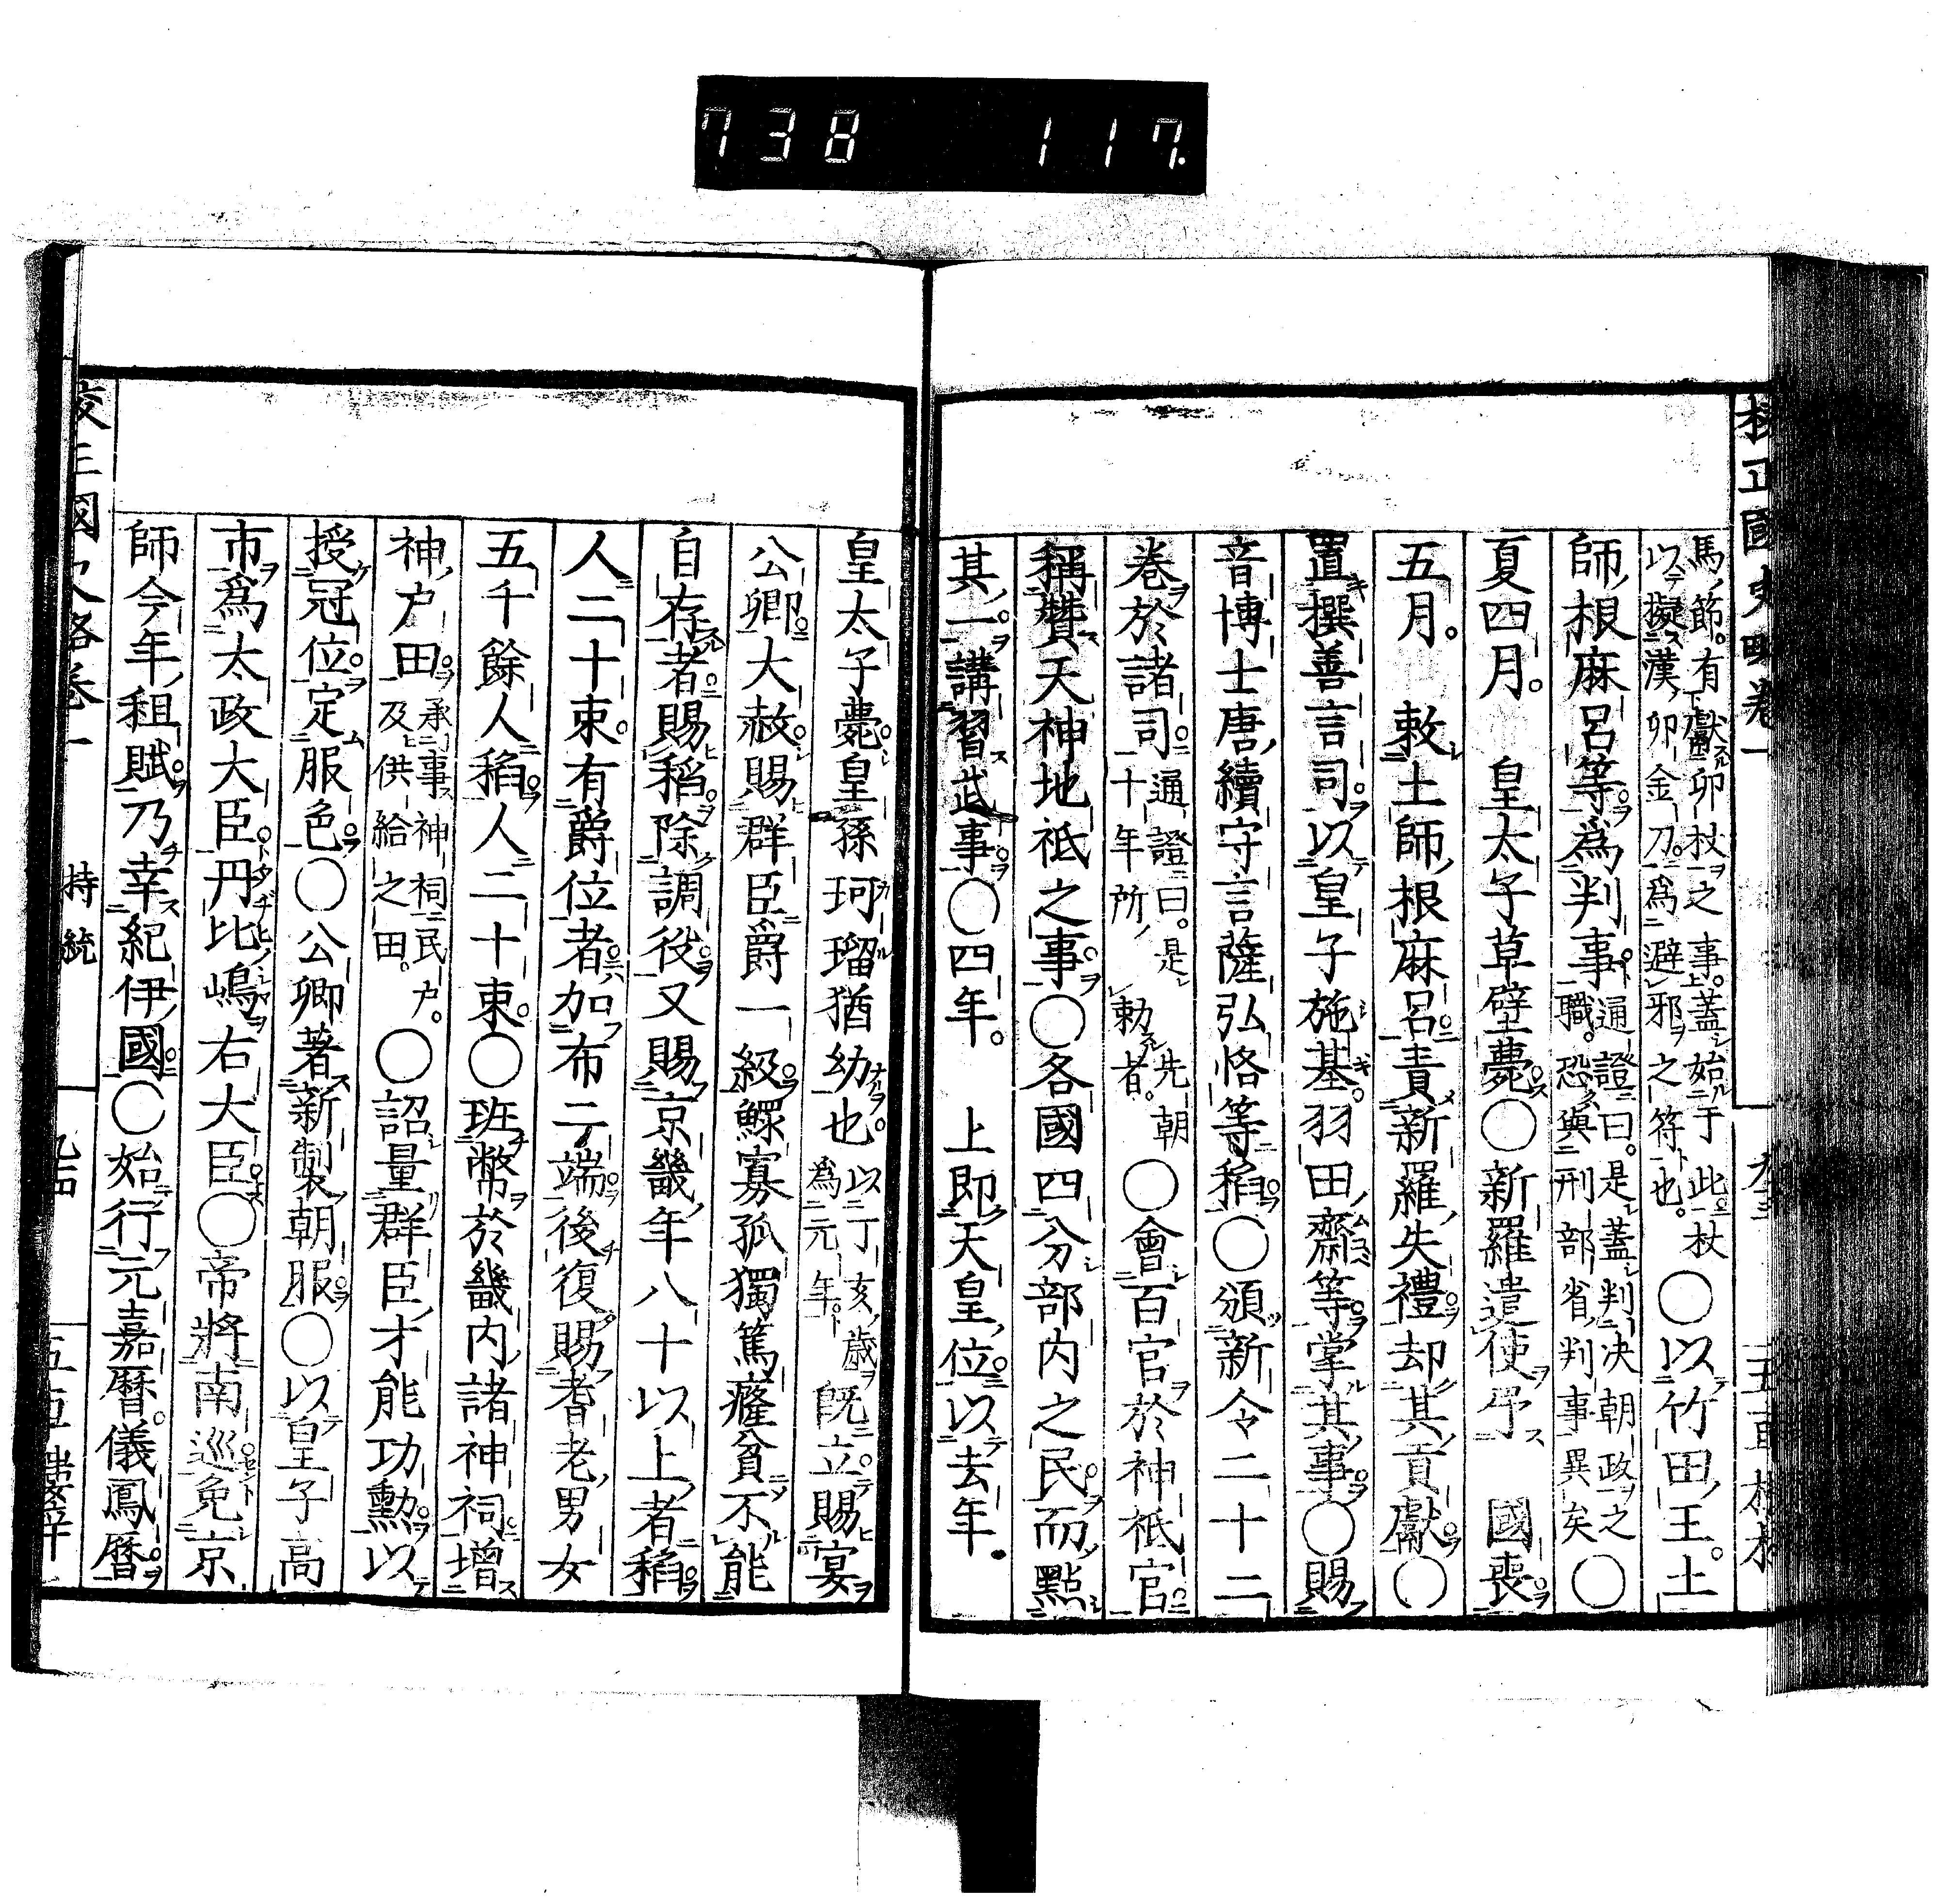 738 117
校正國史略卷一
馬節。有獻卯杖之事。蓋始于此杖
以擬漢卯金刀。爲避邪之符也。
○以竹田王。土
師根麻呂等爲判事
通證曰。是蓋判決朝政之
職。恐與刑部省判事異矣
○
夏四月。 皇太子草壁薨○新羅遣使弔 國喪
五月。 敕土師根麻呂責新羅失禮却其貢獻○
置撰善言司。以皇子施基。羽田齋等掌其事○賜
音博士唐續守言薩弘恪等稻○頒新令二十二
卷於諸司
通證曰。是先朝
十年所勅者。
○會百官於神祇官
稱贊天神地祇之事○各國四分部内之民而點
其一講習武事○四年。 上即天皇位以去年。
皇太子薨皇孫珂瑠猶幼也。
以丁亥歳
爲元年。
既立賜宴
公卿大赦賜群臣爵一級鰥寡孤獨篤癃貧不能
自存者賜稻除調役又賜京畿年八十以上者稻
人二十束。有爵位者加布二端後復賜耆老男女
五千餘人稻人二十束。○班幣於畿内諸神祠増
神戸田
承事神祠民戸。
及供給之田。
○詔量群臣才能功勲以
授冠位。定服色○公卿著新製朝服○以皇子高
市爲太政大臣丹比嶋右大臣○帝將南巡免京
師今年租賦乃幸紀伊國○始行元嘉曆。儀鳳曆
持統